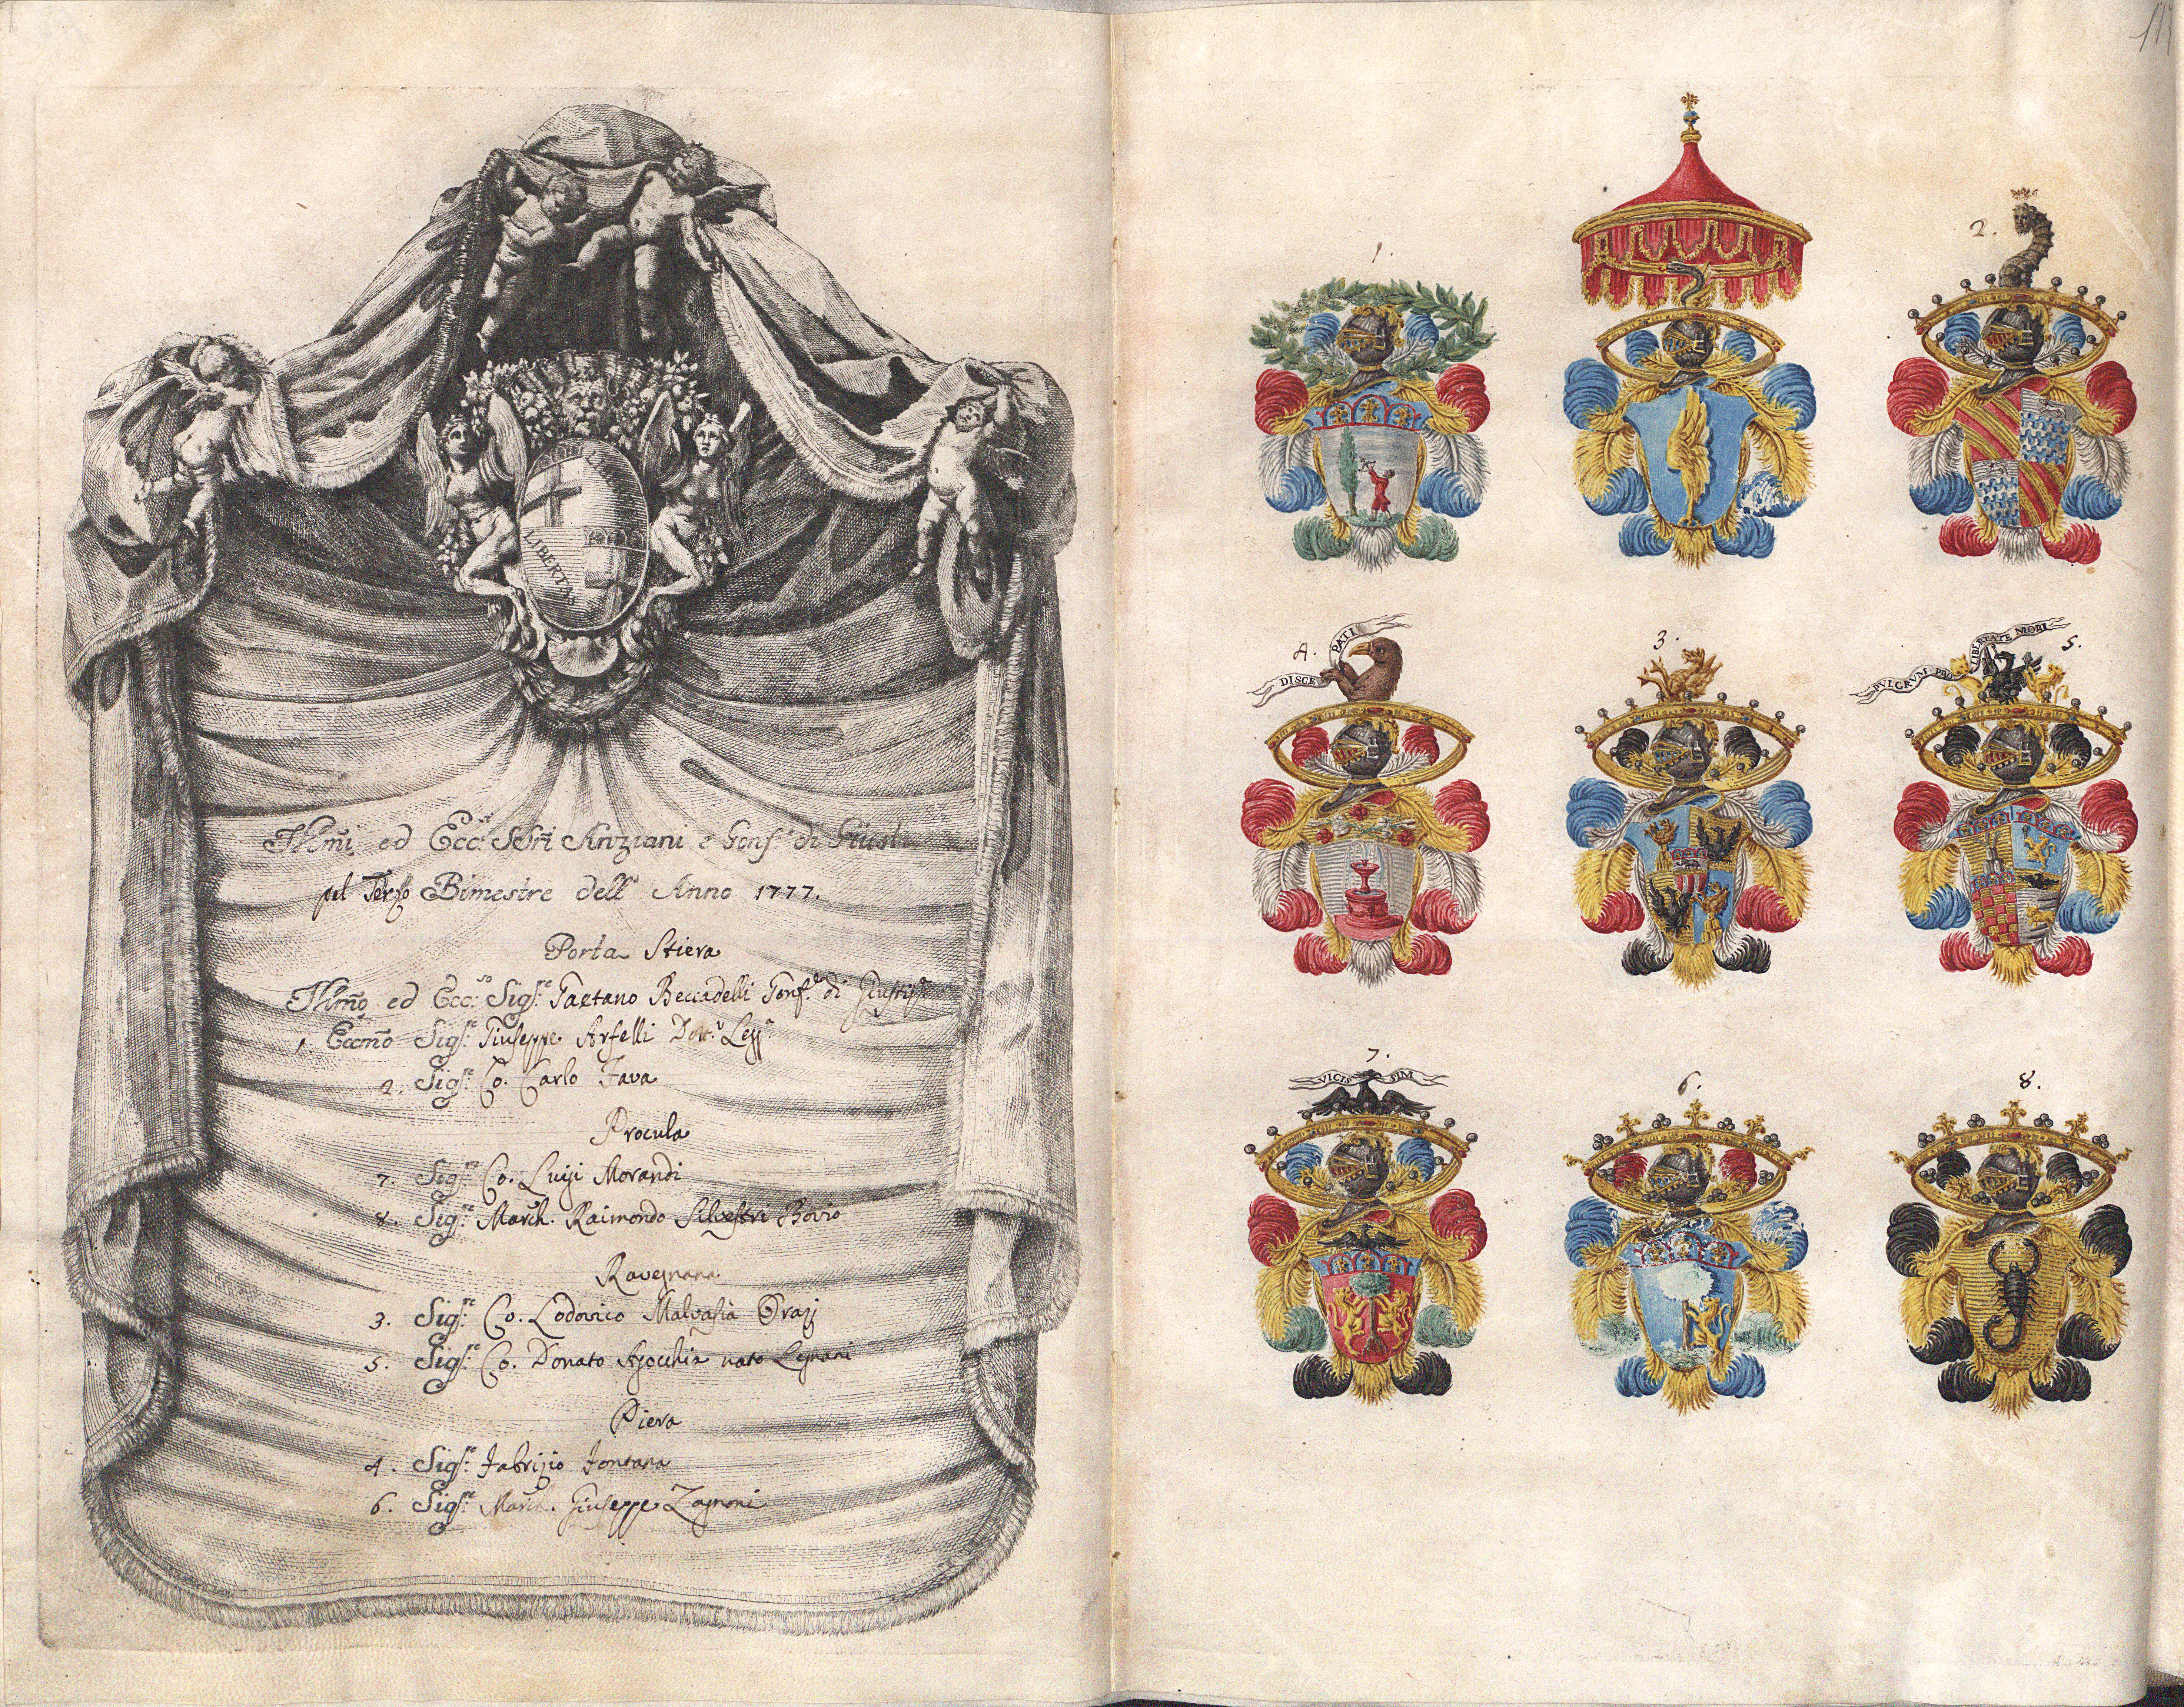 LIBERTAS
Illm̃i ed Ecc.si SSri Anziani e Gonf.r di Giust
pel Terzo Bimestre dell' Anno 1777.
Porta Stiera
Illmõ ed Ecc.so Sig.re Gaetano Beccadelli Gonf.re di
1. Eccmõ Sig.re Giuseppe Arfelli Dott.r Legg.
2. Sig.re Co. Carlo Fava
Procula
7. Sig.re Co. Luigi Morandi
8. Sig.re March. Raimondo Silvestri Bovio
Ravegnana
3. Sig.re Co. Lodovico Malvasia Orazj
5. Sig.re Co. Donato Agocchia nato Legnani
Piera
4. Sig.re Fabrizio Fontana
6. Sig.re March. Giuseppe Zagnoni
1
2.
4.
DISCE PATI
3.
PVLCRVM PRO LIBERTATE MORI
5.
7.
VICIS SIM
6.
8.